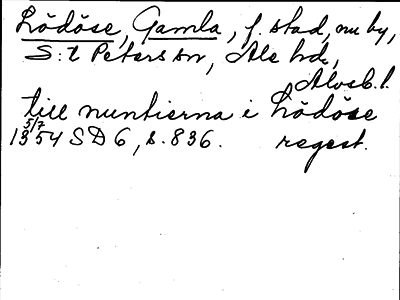 Lödöse, Gamla, f. stad, nu by,
S:t Peters sn, Ale hd,
Älvsb.l.
till nuntierna i Lödöse
5/7
1354 SD 6, s. 836. regest.